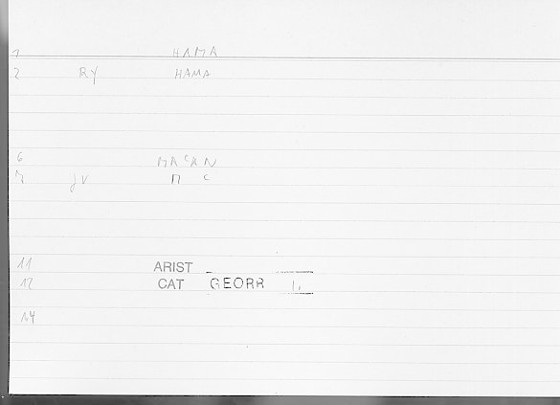 1 HAMA
2 RY HAMA
6
7 JV M C
11 ARIST
12 CAT GEORR
14